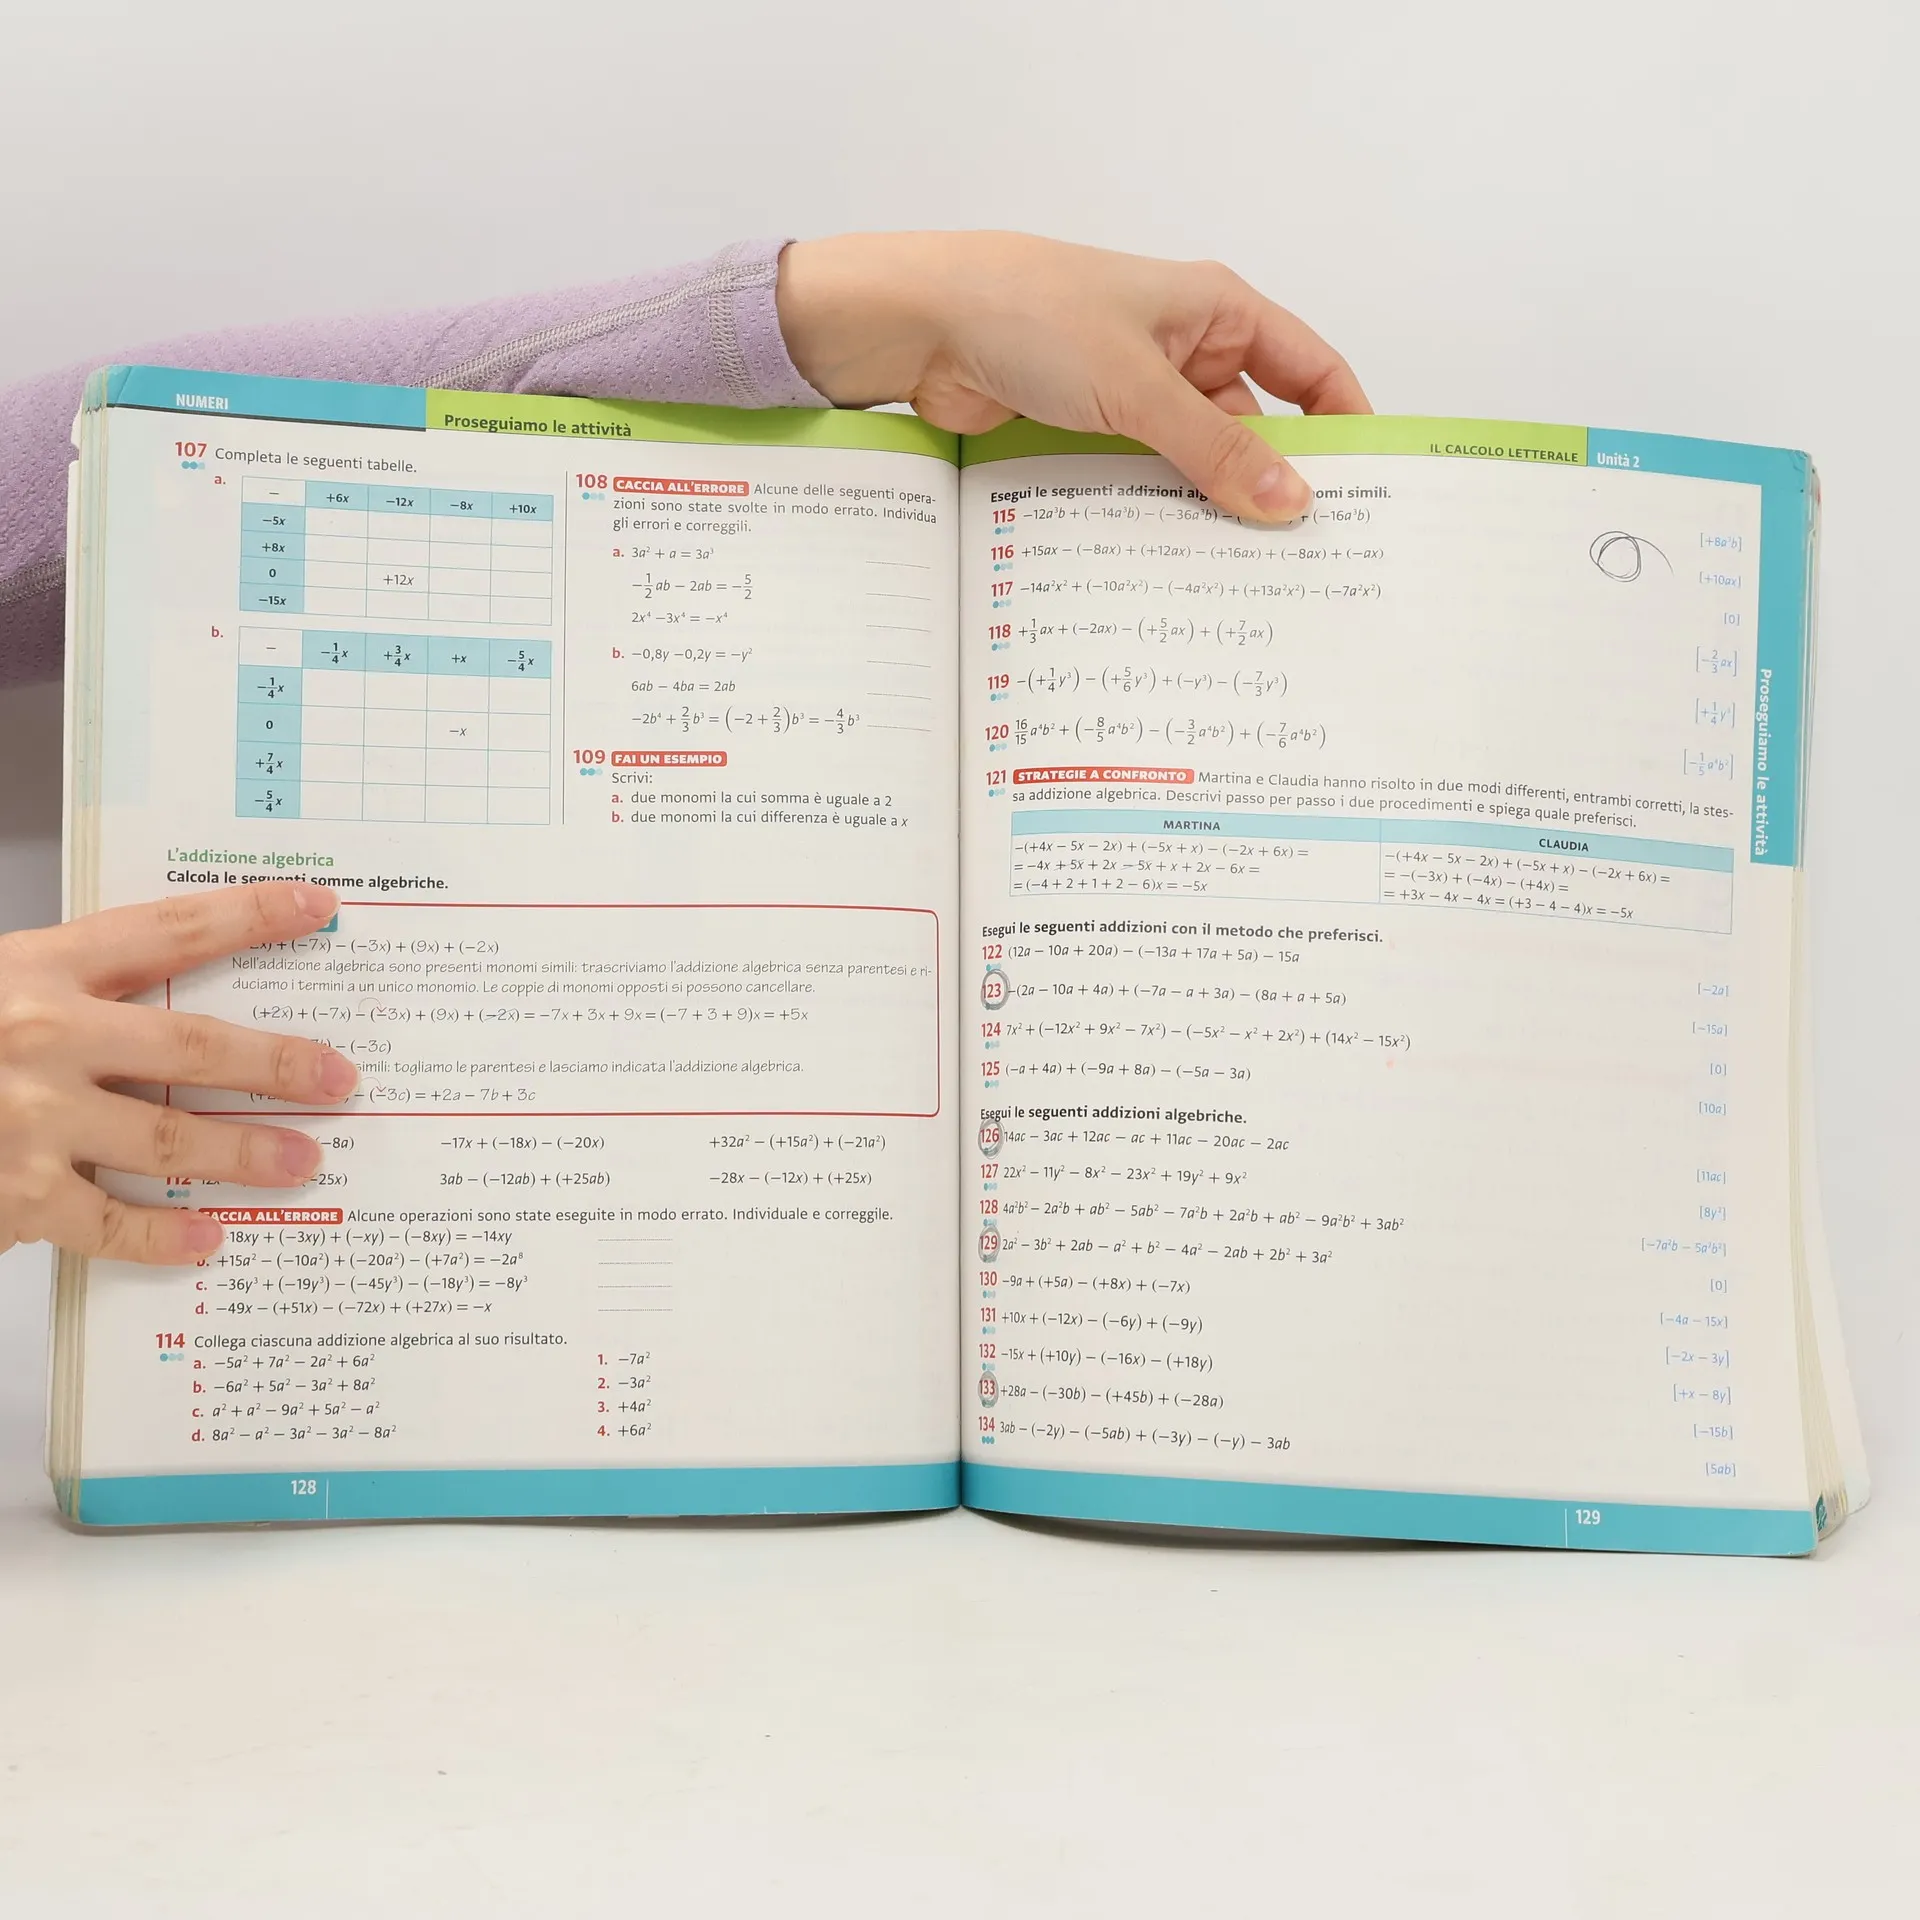 NUMERI
Proseguiamo le attività
107 Completa le seguenti tabelle.
a.
− +6x −12x −8x +10x
−5x
+8x
0 +12x
−15x
b.
− −1/4x +3/4x +x −5/4x
−1/4x
0 −x
+7/4x
−5/4x
108 CACCIA ALL'ERRORE Alcune delle seguenti opera-
zioni sono state svolte in modo errato. Individua
gli errori e correggili.
a. 3a² + a = 3a³
−1/2ab − 2ab = −5/2
2x⁴ −3x⁴ = −x⁴
b. −0,8y −0,2y = −y²
6ab − 4ba = 2ab
−2b⁴ + 2/3b³ = (−2 + 2/3)b³ = −4/3b³
109 FAI UN ESEMPIO
Scrivi:
a. due monomi la cui somma è uguale a 2
b. due monomi la cui differenza è uguale a x
L'addizione algebrica
Calcola le seguenti somme algebriche.
+ (−7x) − (−3x) + (9x) + (−2x)
Nell'addizione algebrica sono presenti monomi simili: trascriviamo l'addizione algebrica senza parentesi e ri-
duciamo i termini a un unico monomio. Le coppie di monomi opposti si possono cancellare.
(+2x) + (−7x) − (−3x) + (9x) + (−2x) = −7x + 3x + 9x = (−7 + 3 + 9)x = +5x
− (−3c)
simili: togliamo le parentesi e lasciamo indicata l'addizione algebrica.
− (−3c) = +2a − 7b + 3c
(−8a) −17x + (−18x) − (−20x) +32a² − (+15a²) + (−21a²)
112 −25x) 3ab − (−12ab) + (+25ab) −28x − (−12x) + (+25x)
CACCIA ALL'ERRORE Alcune operazioni sono state eseguite in modo errato. Individuale e correggile.
−18xy + (−3xy) + (−xy) − (−8xy) = −14xy
b. +15a² − (−10a²) + (−20a²) − (+7a²) = −2a⁸
c. −36y³ + (−19y³) − (−45y³) − (−18y³) = −8y³
d. −49x − (+51x) − (−72x) + (+27x) = −x
114 Collega ciascuna addizione algebrica al suo risultato.
a. −5a² + 7a² − 2a² + 6a² 1. −7a²
b. −6a² + 5a² − 3a² + 8a² 2. −3a²
c. a² + a² − 9a² + 5a² − a² 3. +4a²
d. 8a² − a² − 3a² − 3a² − 8a² 4. +6a²
128
IL CALCOLO LETTERALE Unità 2
Esegui le seguenti addizioni omi simili.
115 −12a³b + (−14a³b) − (−36a³b) − + (−16a³b) [+8a³b]
116 +15ax − (−8ax) + (+12ax) − (+16ax) + (−8ax) + (−ax) [+10ax]
117 −14a²x² + (−10a²x²) − (−4a²x²) + (+13a²x²) − (−7a²x²) [0]
118 +1/3ax + (−2ax) − (+5/2ax) + (+7/2ax) [−2/3ax]
119 −(+1/4y³) − (+5/6y³) + (−y³) − (−7/3y³) [+1/4y³]
120 16/15a⁴b² + (−8/5a⁴b²) − (−3/2a⁴b²) + (−7/6a⁴b²) [−1/5a⁴b²]
121 STRATEGIE A CONFRONTO Martina e Claudia hanno risolto in due modi differenti, entrambi corretti, la stes-
sa addizione algebrica. Descrivi passo per passo i due procedimenti e spiega quale preferisci.
MARTINA
−(+4x − 5x − 2x) + (−5x + x) − (−2x + 6x) =
= −4x + 5x + 2x − 5x + x + 2x − 6x =
= (−4 + 2 + 1 + 2 − 6)x = −5x
CLAUDIA
−(+4x − 5x − 2x) + (−5x + x) − (−2x + 6x) =
= −(−3x) + (−4x) − (+4x) =
= +3x − 4x − 4x = (+3 − 4 − 4)x = −5x
Esegui le seguenti addizioni con il metodo che preferisci.
122 (12a − 10a + 20a) − (−13a + 17a + 5a) − 15a [−2a]
123 −(2a − 10a + 4a) + (−7a − a + 3a) − (8a + a + 5a) [−15a]
124 7x² + (−12x² + 9x² − 7x²) − (−5x² − x² + 2x²) + (14x² − 15x²) [0]
125 (−a + 4a) + (−9a + 8a) − (−5a − 3a) [10a]
Esegui le seguenti addizioni algebriche.
126 14ac − 3ac + 12ac − ac + 11ac − 20ac − 2ac [11ac]
127 22x² − 11y² − 8x² − 23x² + 19y² + 9x² [8y²]
128 4a²b² − 2a²b + ab² − 5ab² − 7a²b + 2a²b + ab² − 9a²b² + 3ab² [−7a²b − 5a²b²]
129 2a² − 3b² + 2ab − a² + b² − 4a² − 2ab + 2b² + 3a² [0]
130 −9a + (+5a) − (+8x) + (−7x) [−4a − 15x]
131 +10x + (−12x) − (−6y) + (−9y) [−2x − 3y]
132 −15x + (+10y) − (−16x) − (+18y) [+x − 8y]
133 +28a − (−30b) − (+45b) + (−28a) [−15b]
134 3ab − (−2y) − (−5ab) + (−3y) − (−y) − 3ab [5ab]
Proseguiamo le attività
129